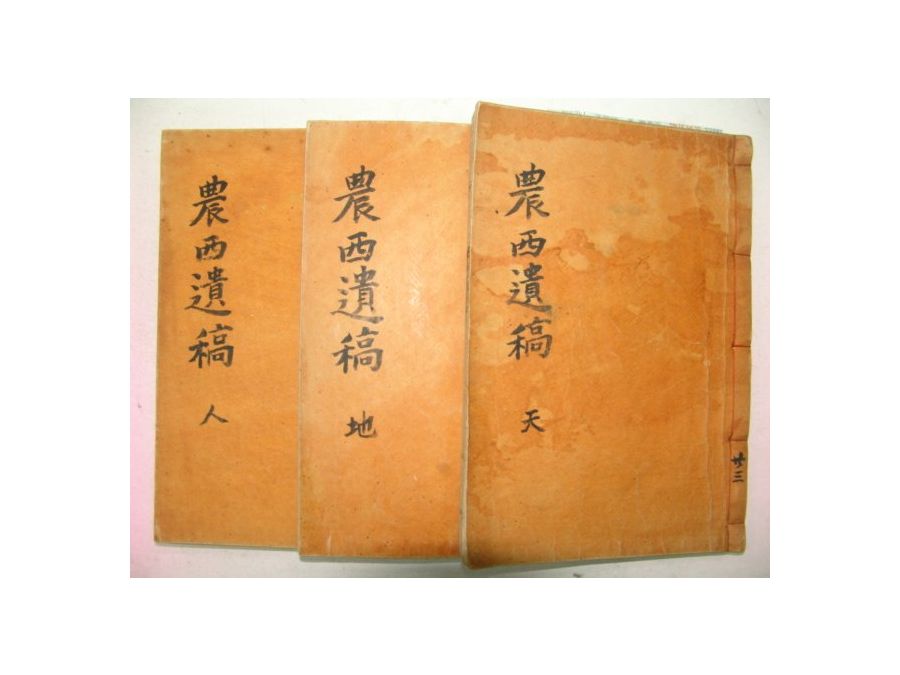 農西遺稿
天
廿三
農西遺稿
地
農西遺稿
人